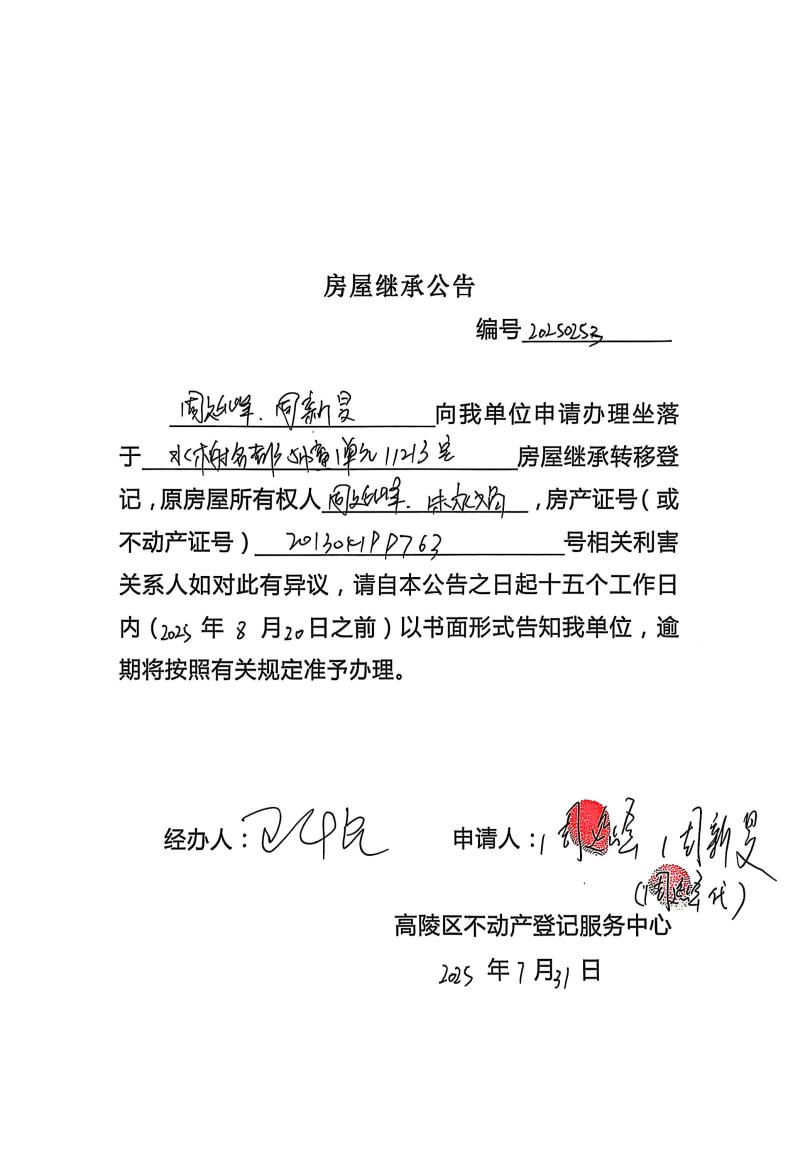 房屋继承公告
编号 20250253
周延峰、周新旻 向我单位申请办理坐落
于 水榭名都 1单元11213室 房屋继承转移登
记，原房屋所有权人 周延峰、 ，房产证号（或
不动产证号） 号相关利害
关系人如对此有异议，请自本公告之日起十五个工作日
内（2025 年 8 月20日之前）以书面形式告知我单位，逾
期将按照有关规定准予办理。
经办人： 申请人：周延峰 周新旻
（周延峰代）
高陵区不动产登记服务中心
2025 年7月31日